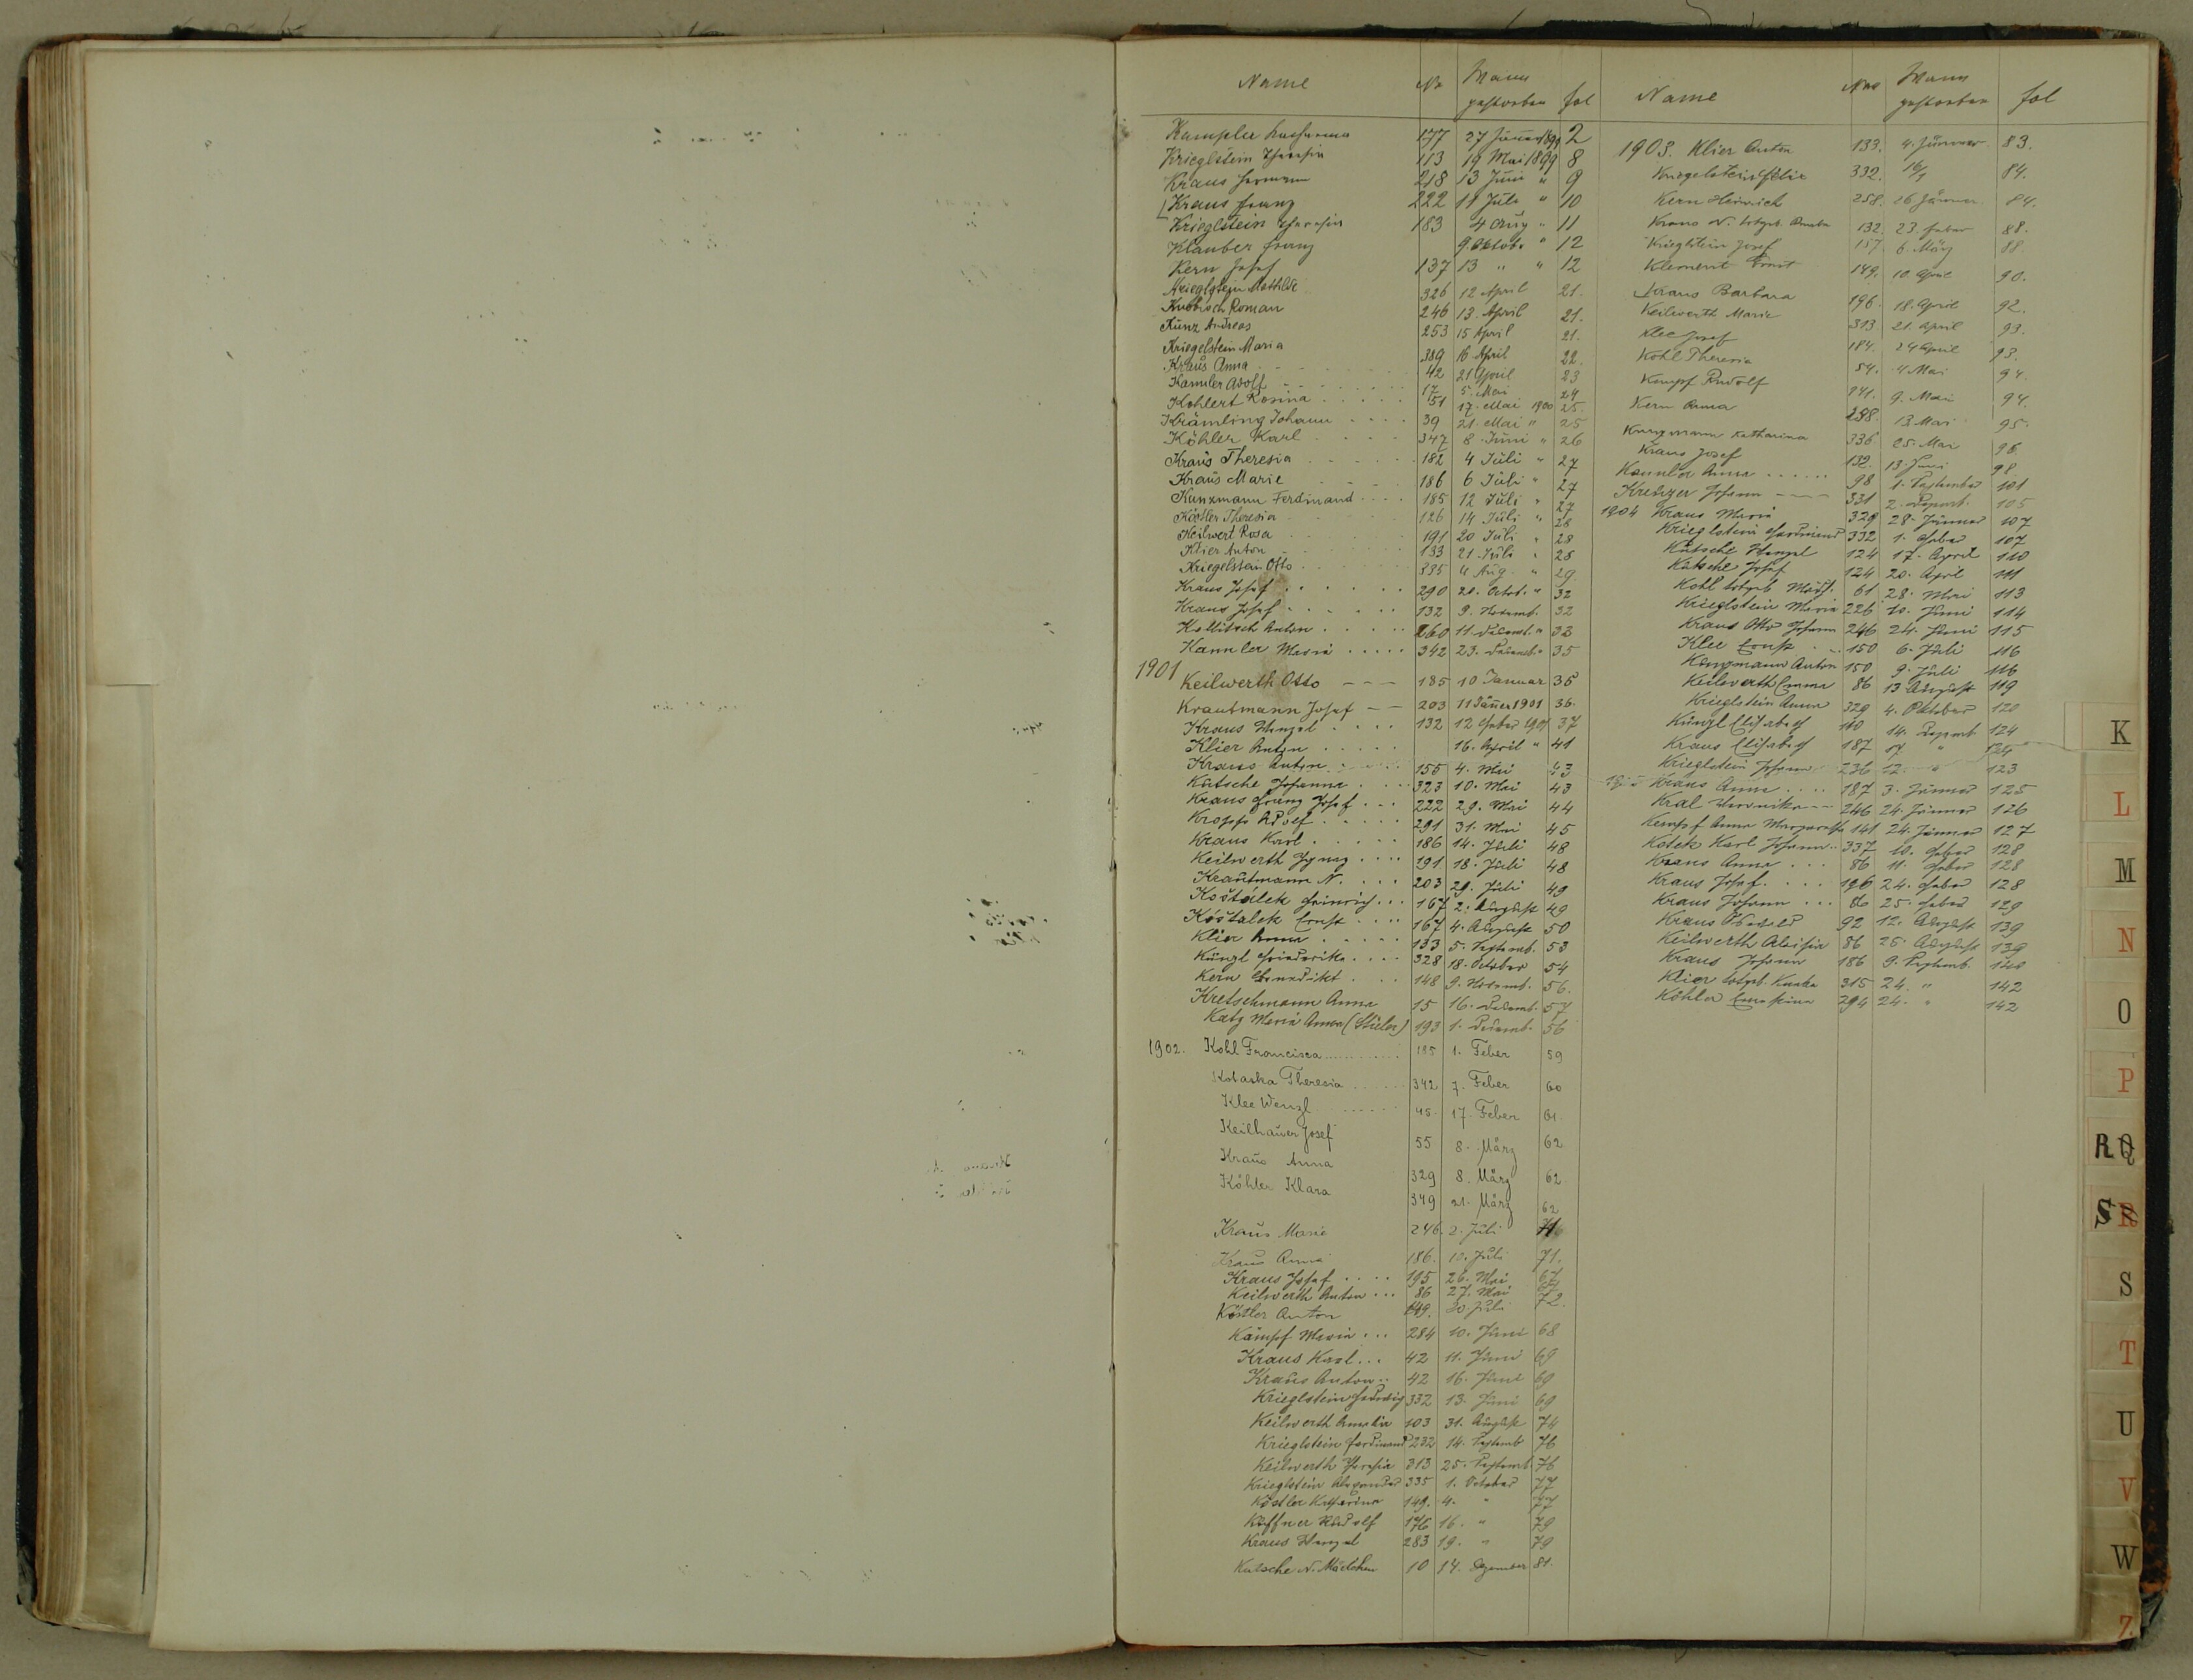 Name No Wann gestorben fol
Kampler 177 27 Jänner 1899 2
Krieglstein Theresia 113 19 Mai 1899 8
Kraus Hermann 218 13 Juni " 9
Kraus Franz 222 11 Juli " 10
Krieglstein Theresia 183 4 Aug " 11
Klauber Franz 9. Oktob. " 12
Kern Josef 137 13 " " 12
Krieglstein Mathilde 326 12 April 21.
Kubitsch Roman 246 13. April 21.
Künz Andreas 253 15 April 21.
Kriegelstein Maria 389 16 April 22.
Kraus Anna 42 21 April 23
Kannler Adolf 17 5. Mai 24
Kohlert Rosina 51 17. Mai 1900 25.
Krämling Johann 39 21. Mai " 25
Köhler Karl 347 8. Juni " 26
Kraus Theresia 182 4 Juli " 27
Kraus Marie 186 6 Juli " 27
Kunzmann Ferdinand 185 12 Juli " 27
Köstler Theresia 126 14 Juli " 28
Keilwert Rosa 191 20 Juli " 28
Klier Anton 133 21. Juli " 28
Kriegelstein Otto 335 4 Aug. " 29
Kraus Josef 290 20. Octob. " 32
Kraus Josef 132 9. Novemb. 32
Kollitsch Anton 260 11. Decemb. " 33
Kannler Maria 342 23. Decemb. " 35
1901 Keilwerth Otto 185 10 Januar 35
Krautmann Josef 203 11 Jäner 1901 36.
Kraus Wenzel 132 12 Feber 1901 37
Klier Anton 16. April " 41
Kraus Anton 155 4. Mai 43
Kutsche Johanna 323 10. Mai 43
Kraus Franz Josef 222 29. Mai 44
Kropf Adolf 291 31. Mai 45
Kraus Karl 186 14. Juli 48
Keilwerth Ignaz 191 18. Juli 48
Krautmann N. 203 29. Juli 49
Koštálek Heinrich 167 2. August 49
Koštalek Ernst 167 4. August 50
Klier Anna 133 5. Septemb. 53
Künzl Friederike 328 18. October 54
Kern Benedikt 148 9. Novemb. 56.
Kretschmann Anna 15 16. Decemb. 57
Katz Maria Anna (Stieler) 193 1. Decemb. 56
1902. Kohl Francisca 185 1. Feber 59
Kolaska Theresia 342 7. Feber 60
Klee Wenzl 45. 17. Feber 61.
Keilhauer Josef 55 8. März 62
Kraus Anna 329 8. März 62
Köhler Klara 349 21. März 62
Kraus Marie 246. 2. Juli 71
Kraus Anna 186. 12. Juli 71.
Kraus Josef 195 26. Mai 67
Keilwerth Anton 86 27. Mai 67
Köstler Anton 149. 30 Juli 72.
Kämpf Maria 284 10. Juni 68
Kraus Karl 42 11. Juni 69
Kraus Anton 42 16. Juni 69
Krieglstein Hedwig 332 13. Juni 69
Keilwerth Amalia 103 31. August 74
Krieglstein Ferdinand 232 14. Septemb 76
Keilwerth Theresia 313 25. Septemb 76
Krieglstein Alexander 335 1. October 77
Köstler Katharina 149. 4. " 77
Küffner Rudolf 176 16. " 79
Kraus Wenzel 283 19. " 79
Kutsche N. Mädchen 10 14. Dezember 81.
Name Nro Wann gestorben fol
1903. Klier Anton 133. 4. Jänner 83.
Kriegelstein Felix 332. 16/1 84.
Kern Heinrich 258. 26 Jänner 84.
Kraus N. todtgeb. Knabe 132. 23. Feber 88.
Krieglstein Josef 157. 6. März 88.
Klement Ernst 149. 10. April 90.
Kraus Barbara 196. 18. April 92.
Keilwerth Marie 313. 21. April 93.
Klee Josef 184. 24 April 93.
Kohl Theresia 54. 4 Mai 94.
Kempf Rudolf 141. 9. Mai 94.
Kern Anna 258. 13 Mai 95.
Kunzmann Katharina 336 25. Mai 96.
Kraus Josef 132. 13. Juni 98
Kannler Anna 98 1. September 101
Kreuzer Johann 331 2. Dezemb. 105
1904 Kraus Maria 329 28. Jänner 107
Krieglstein Ferdinand 332 1. Feber 107
Kutsche Wenzel 124 17. April 110
Kutsche Josef 124 20. April 111
Kohl todtgeb. Mädch. 61 28. Mai 113
Krieglstein Maria 226 10. Juni 114
Kraus Otto Johann 246 24. Juni 115
Klee Ernst 150 6. Juli 116
Kunzmann Anton 150 9. Juli 116
Keilwerth Emma 86 13 August 119
Krieglstein Anna 329 4. Oktober 120
Künzl Elisabeth 110 14. Dezemb 124
Kraus Elisabeth 187 17. " 124
Krieglstein Johann 236 12. " 123
Kraus Anna 187 3. Jänner 125
Kral Veronika 246 24. Jänner 126
Kempf Anna Margaretha 141 24. Jänner 127
Kotek Karl Johann 337 10. Feber 128
Kraus Anna 86 11. Feber 128
Kraus Josef 196 24. Feber 128
Kraus Johann 86 25. Feber 129
Kraus 92 12. August 139
Keilwerth Aloisia 86 25. August 139
Kraus Johann 186 9. Septemb. 140
Klier todtgeb. Knabe 315 24. " 142
Köhler Ernestine 294 24. " 142
K
L
M
N
O
P
R Q
S R
S
T
U
V
W
Z